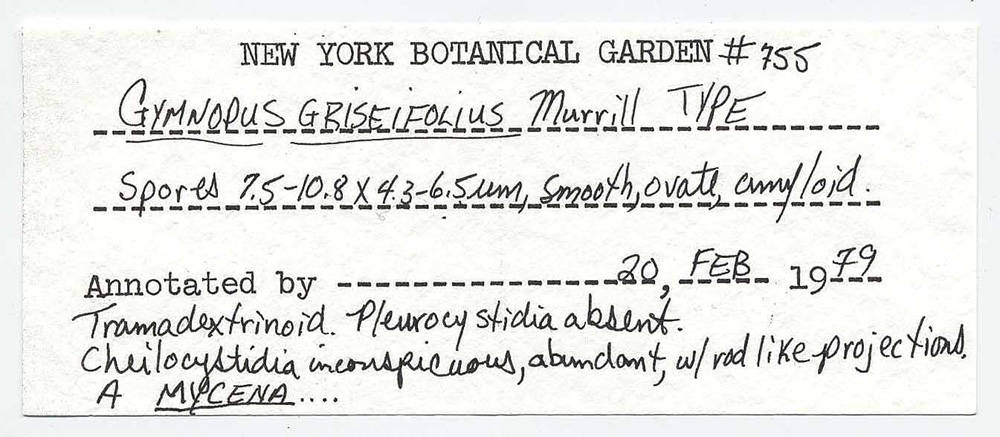 NEW YORK BOTANICAL GARDEN #755
GYMNOPUS GRISEIFOLIUS Murrill TYPE
Spores 7.5-10.8 X 4.3-6.5um, smooth, ovate, amyloid.
Annotated by 20, FEB 1979
Trama dextrinoid. Pleurocystidia absent.
Cheilocystidia inconspicuous, abundant, w/ rod like projections.
A MYCENA....